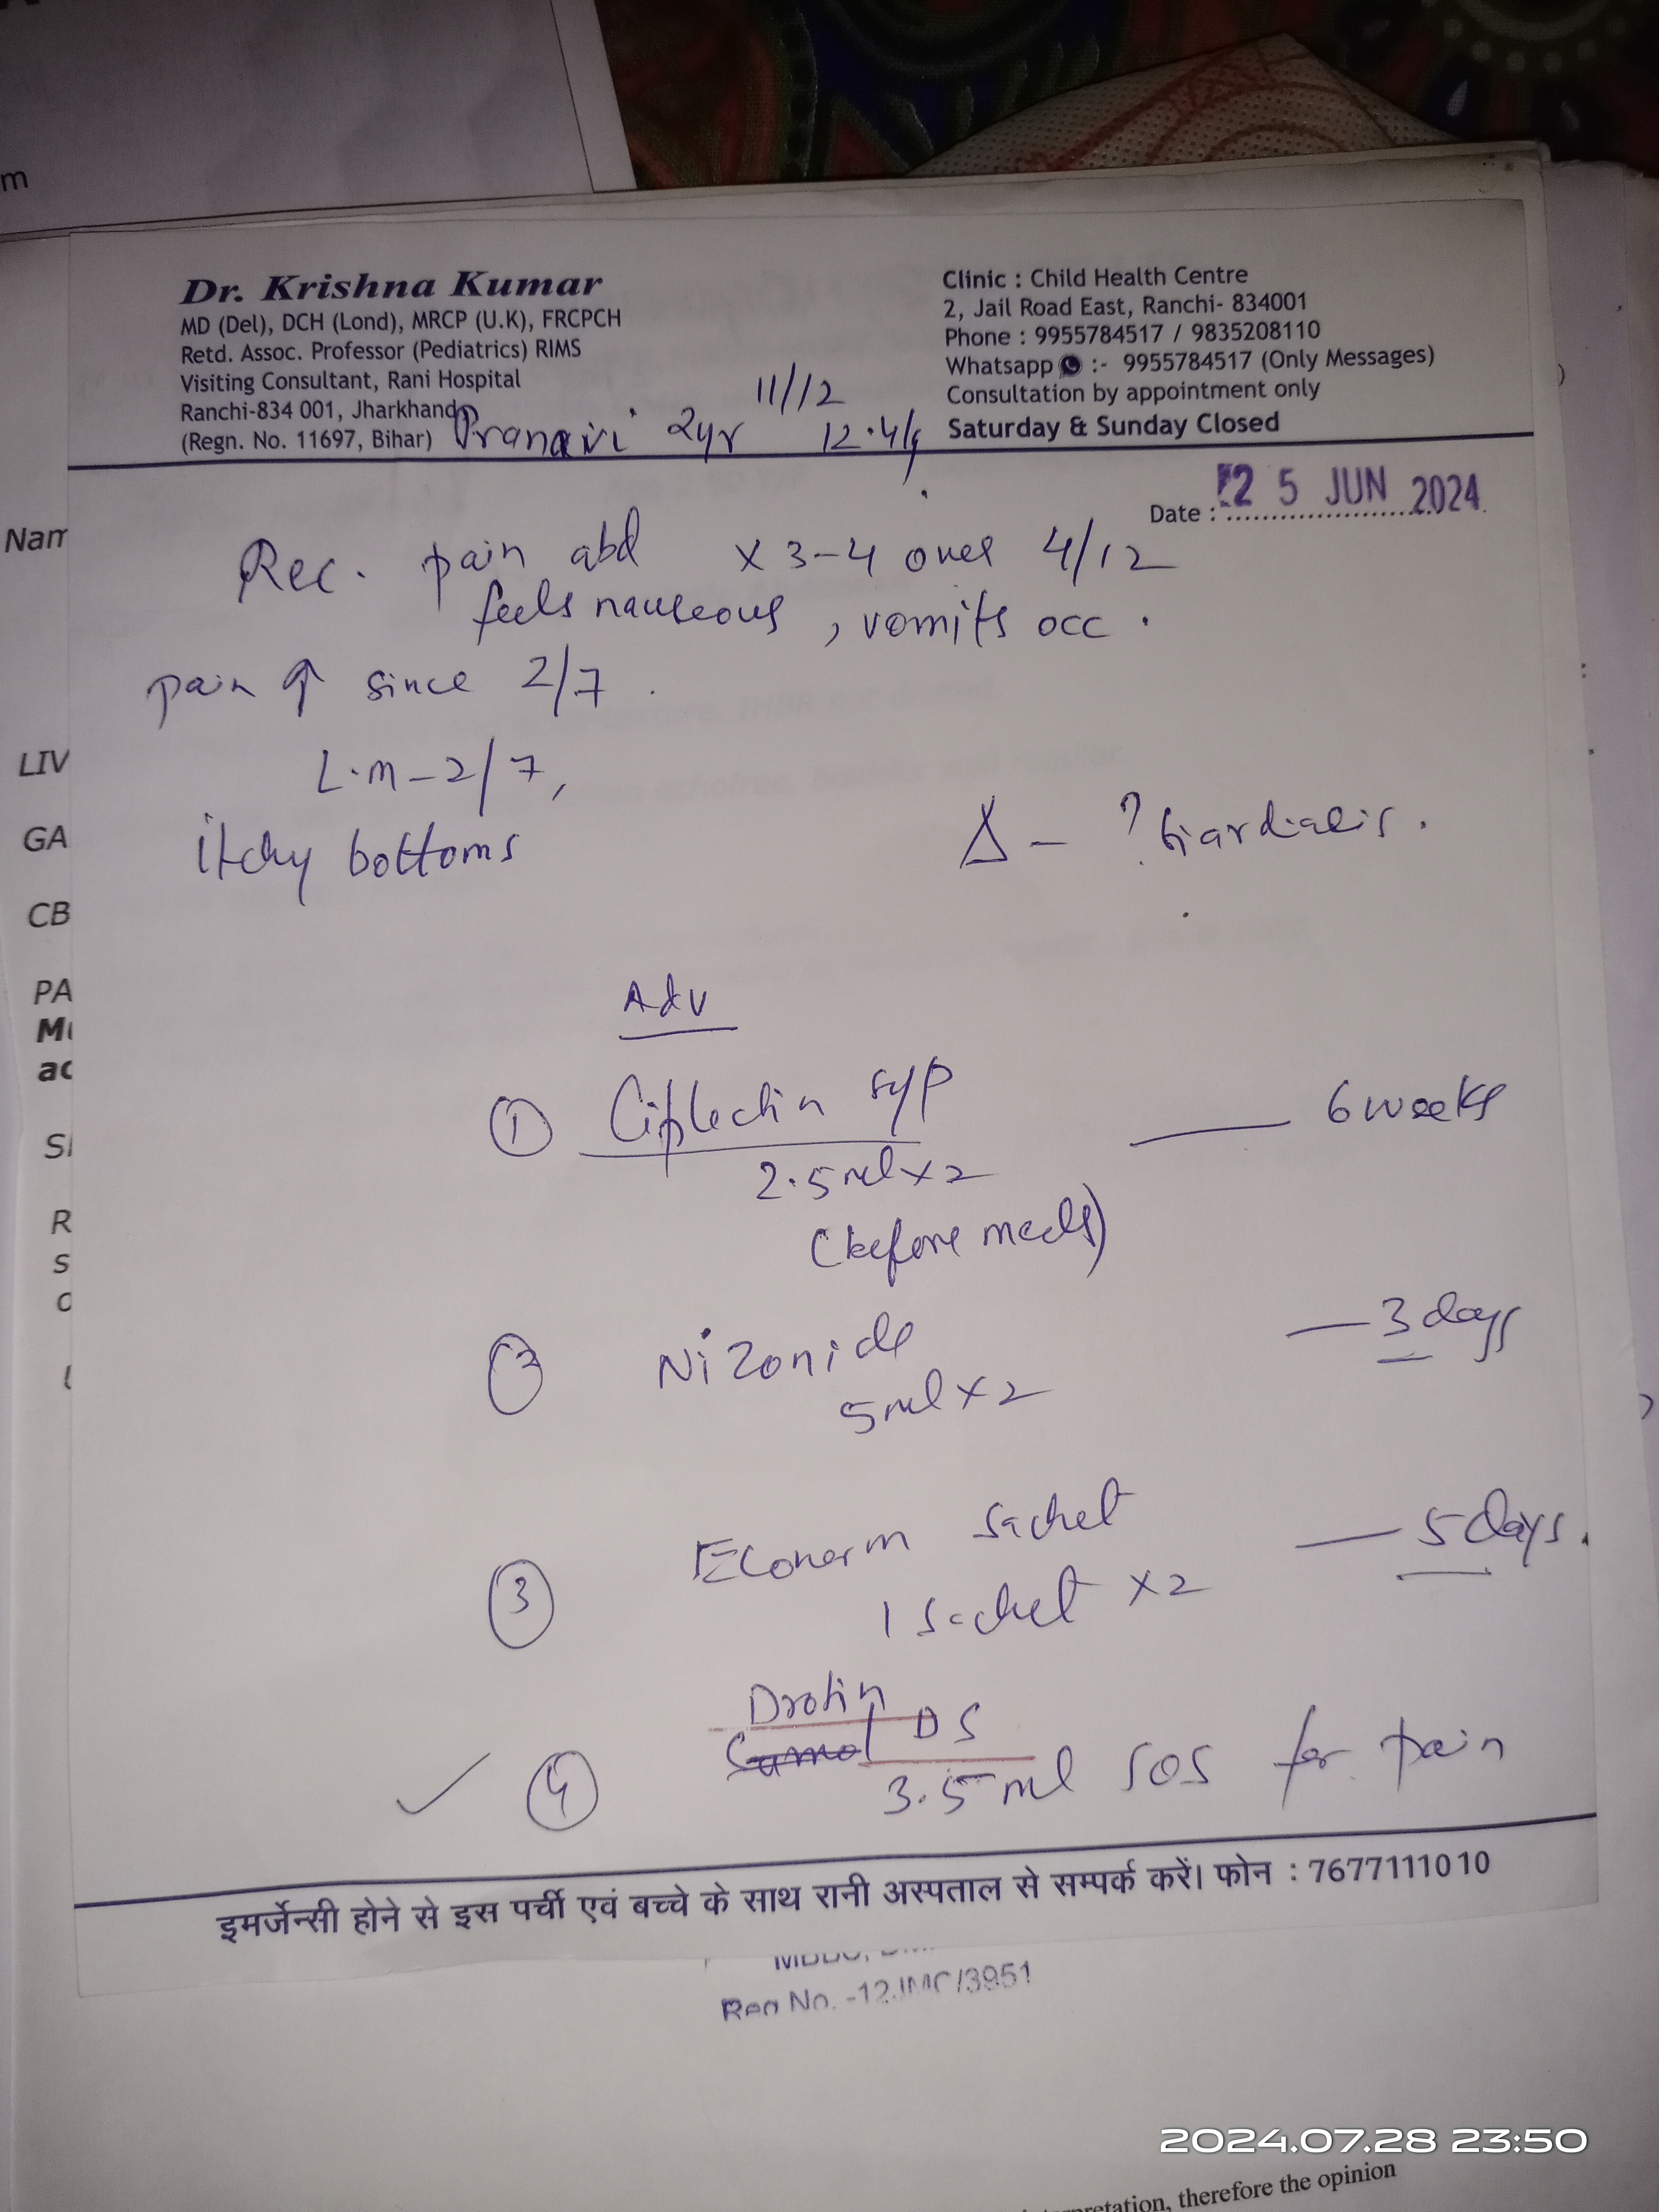 m
Dr. Krishna Kumar
MD (Del), DCH (Lond), MRCP (U.K), FRCPCH
Retd. Assoc. Professor (Pediatrics) RIMS
Visiting Consultant, Rani Hospital
Ranchi-834 001, Jharkhand
(Regn. No. 11697, Bihar)
Clinic : Child Health Centre
2, Jail Road East, Ranchi- 834001
Phone : 9955784517 / 9835208110
Whatsapp :- 9955784517 (Only Messages)
Consultation by appointment only
Saturday & Sunday Closed
Pranavi 2yr 11/12
12.4kg
Date : 25 JUN 2024
Rec. pain abd x 3-4 over 4/12
feels nauseous, vomits occ.
pain ↑ since 2/7.
L.m - 2/7,
itchy bottoms
Δ - ? Giardiasis.
Adv
① Ciplectin syp — 6 weeks
2.5ml x 2
(before meals)
② Nizonide — 3 days
5ml x 2
③ Econorm sachet — 5 days.
1 sachet x 2
✓ ④ Drotin DS
3.5 ml SOS for pain
इमर्जेन्सी होने से इस पर्ची एवं बच्चे के साथ रानी अस्पताल से सम्पर्क करें। फोन : 7677111010
Nam
LIV
GA
CB
PA
ac
R
s
Reg No. -12JMC/3951
therefore the opinion
2024.07.28 23:50